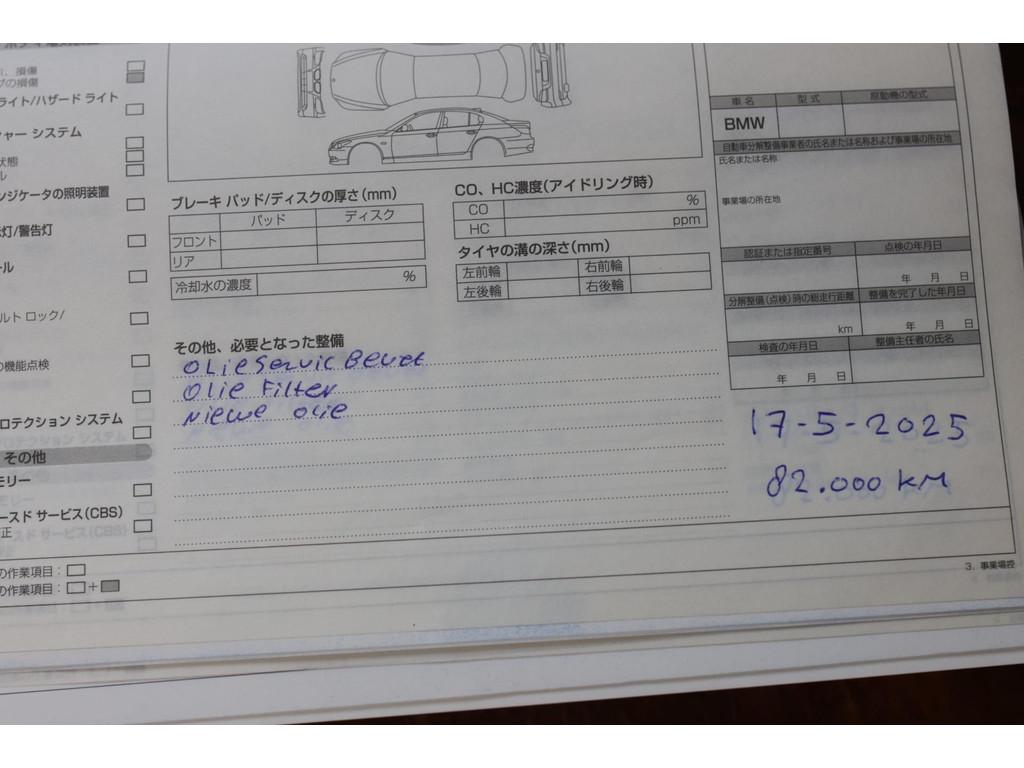 損傷
の損傷
ライト/ハザード ライト
ャー システム
状態
ル
ンジケータの照明装置
灯/警告灯
ール
ルト ロック/
の機能点検
ロテクション システム
その他
モリー
ースド サービス(CBS)
正
の作業項目:
の作業項目: +
ブレーキ パッド/ディスクの厚さ(mm)
パッド ディスク
フロント
リア
冷却水の濃度 %
CO、HC濃度(アイドリング時)
CO %
HC ppm
タイヤの溝の深さ(mm)
左前輪 右前輪
左後輪 右後輪
その他、必要となった整備
OLie Servic Beurt
OLie Filter
Nieuwe OLIE
車名 型式 原動機の型式
BMW
自動車分解整備事業者の氏名または名称および事業場の所在地
氏名または名称
事業場の所在地
認証または指定番号 点検の年月日
年 月 日
分解整備(点検)時の総走行距離 整備を完了した年月日
km 年 月 日
検査の年月日 整備主任者の氏名
年 月 日
17-5-2025
82.000 KM
3. 事業場控